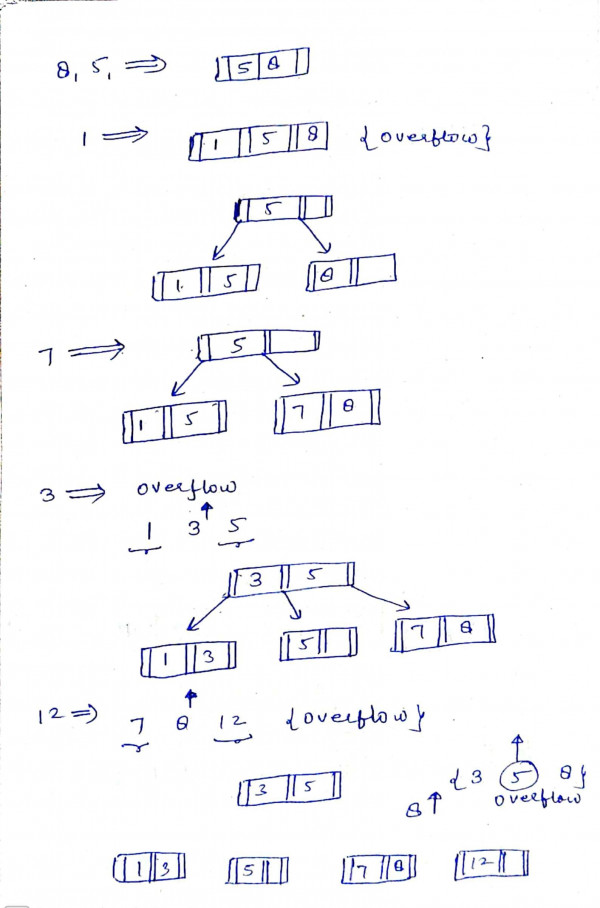 8, 5, ⇒ 5 8
1 ⇒ 1 5 8 {overflow}
5
1 5 8
7 ⇒ 5
1 5 7 8
3 ⇒ overflow
1 3 5
3 5
1 3 5 7 8
12 ⇒ 7 8 12 {overflow}
3 5 8 {3 5 8}
overflow
1 3 5 7 8 12